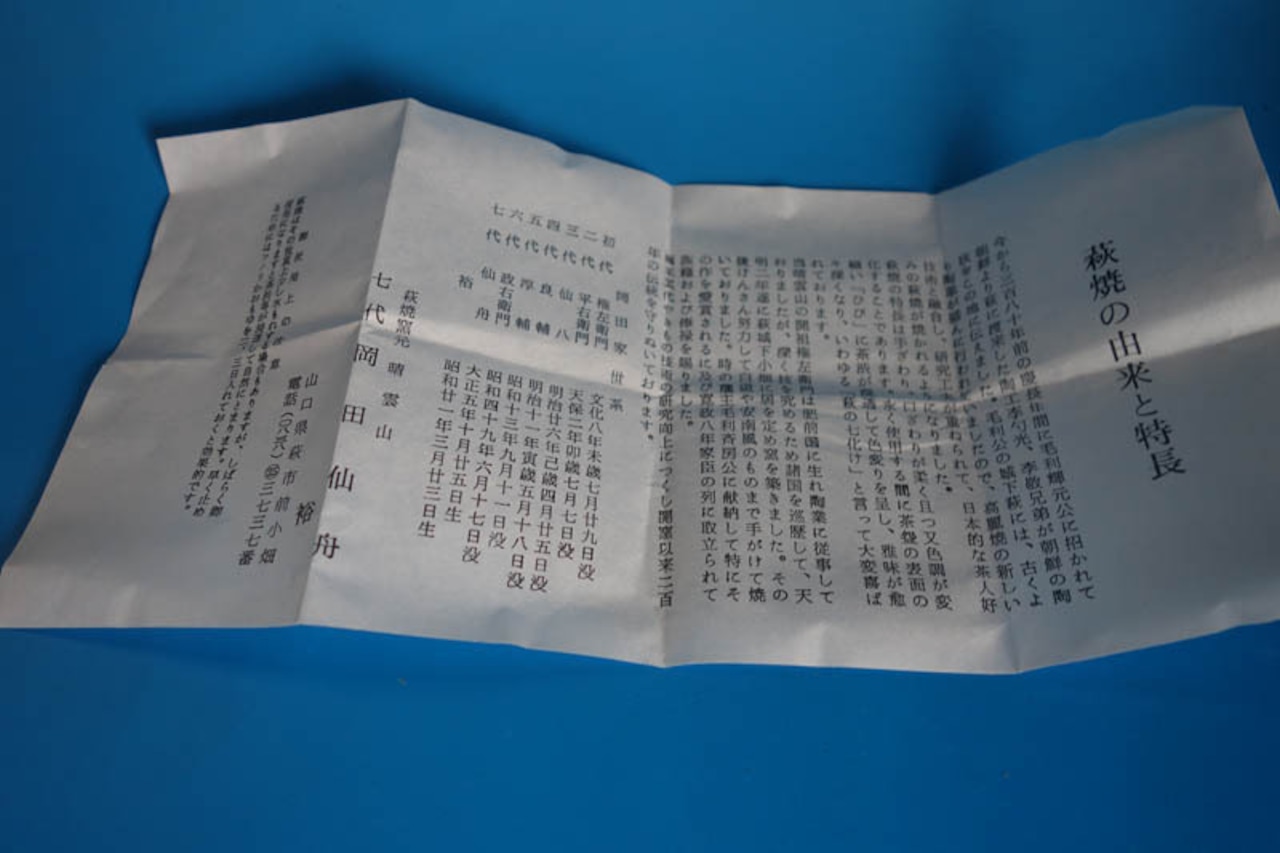 萩焼の由来と特長
今から三百八十年前の慶長年間に毛利輝元公に招かれて
朝鮮より萩に渡来した陶工李勺光、李敬兄弟が朝鮮の陶
技をこの地に伝えました。毛利公の城下萩には、古くよ
いましたので、高麗焼の新しい
技術と融合し、研究工夫が重ねられて、日本的な茶人好
みの萩焼が焼かれるようになりました。
萩焼の特長は手ざわり、口ざわりが柔く且つ又色調が変
化することであります。永く使用する間に茶盌の表面の
細い「ひび」に茶渋が浸透して色変りを呈し、雅味が愈
々深くなり、いわゆる「萩の七化け」と言って大変喜ば
れております。
晴雲山の開祖権左衛門は肥前国に生れ陶業に従事して
おりましたが、深く技を究めるため諸国を巡歴して、天
明二年遂に萩城下小畑に居を定め窯を築きました。その
後けんさん努力して白磁や安南風のものまで手がけて焼
いておりました。時の藩主毛利斉房公に献納して特にそ
の作を愛賞されるに及び寛政八年家臣の列に取立られて
苗籍および俸禄を賜りました。
の技術の研究向上につくし開窯以来二百
年の伝統を守りぬいております。
岡田家世系
初代 権左衛門 文化八年未歳七月廿九日没
二代 平右衛門 天保二年卯歳七月七日没
三代 仙八 明治廿六年己歳四月廿五日没
四代 良輔 明治十一年寅歳五月十八日没
五代 淳輔 昭和十三年九月十一日没
六代 政右衛門 昭和四十九年六月十七日没
七代 仙舟 大正五年十月廿五日生
裕 昭和廿一年三月廿三日生
萩焼窯元 晴雲山
七代 岡田仙舟
裕
山口県萩市前小畑